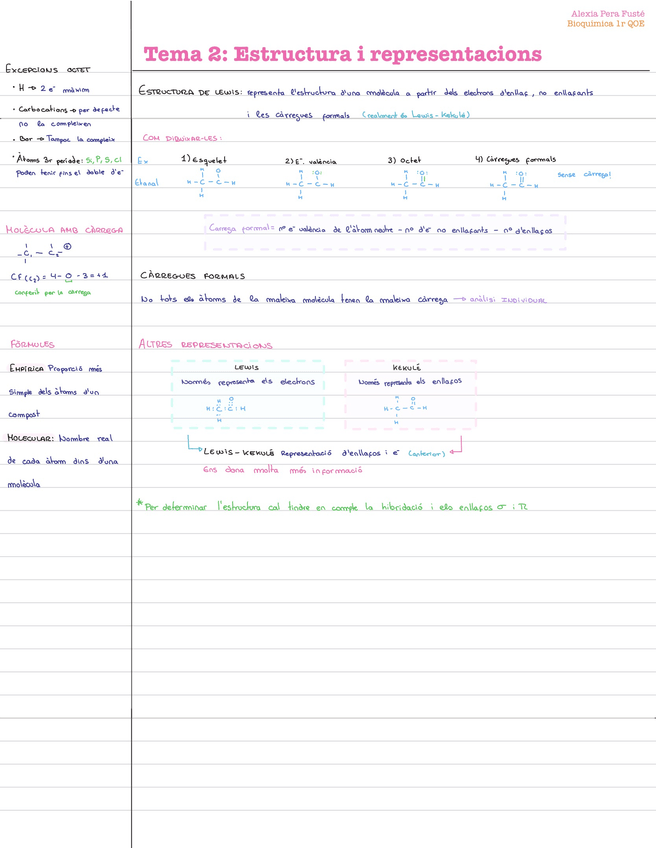 Alexia Pera Fusté
Bioquímica 1r QOE
Tema 2: Estructura i representacions
EXCEPCIONS OCTET
· H → 2 e⁻ màxim
· Carbocations → per defecte
no la compleixen
· Bor → Tampoc la compleix
· Àtoms 3r període: Si, P, S, Cl
poden tenir fins el doble d'e⁻
MOLÈCULA AMB CÀRREGA
- C₁ - C₂ ⊕
CF (C₂) = 4 - 0 - 3 = +1
compartit per la càrrega
FÓRMULES
EMPÍRICA Proporció més
simple dels àtoms d'un
compost
MOLECULAR: Nombre real
de cada àtom dins d'una
molècula
ESTRUCTURA DE LEWIS: representa l'estructura d'una molècula a partir dels electrons d'enllaç, no enllaçants
i les càrregues formals (realment és Lewis-Kekulé)
COM DIBUIXAR-LES:
Ex 1) Esquelet 2) E⁻ valència 3) Octet 4) Càrregues formals
Etanal
H O H :O: H :O: H :O:
H - C - C - H H - C - C - H H - C - C - H H - C - C - H
H H H H
Sense càrrega!
Càrrega formal = nº e⁻ valència de l'àtom neutre - nº d'e⁻ no enllaçants - nº d'enllaços
CÀRREGUES FORMALS
No tots els àtoms de la mateixa molècula tenen la mateixa càrrega → anàlisi INDIVIDUAL
ALTRES REPRESENTACIONS
LEWIS
Només representa els electrons
H O
H : C : C : H
H
KEKULÉ
Només representa els enllaços
H O
H - C - C - H
H
LEWIS-KEKULÉ Representació d'enllaços i e⁻ (anterior)
Ens dona molta més informació
* Per determinar l'estructura cal tindre en compte la hibridació i els enllaços σ i π